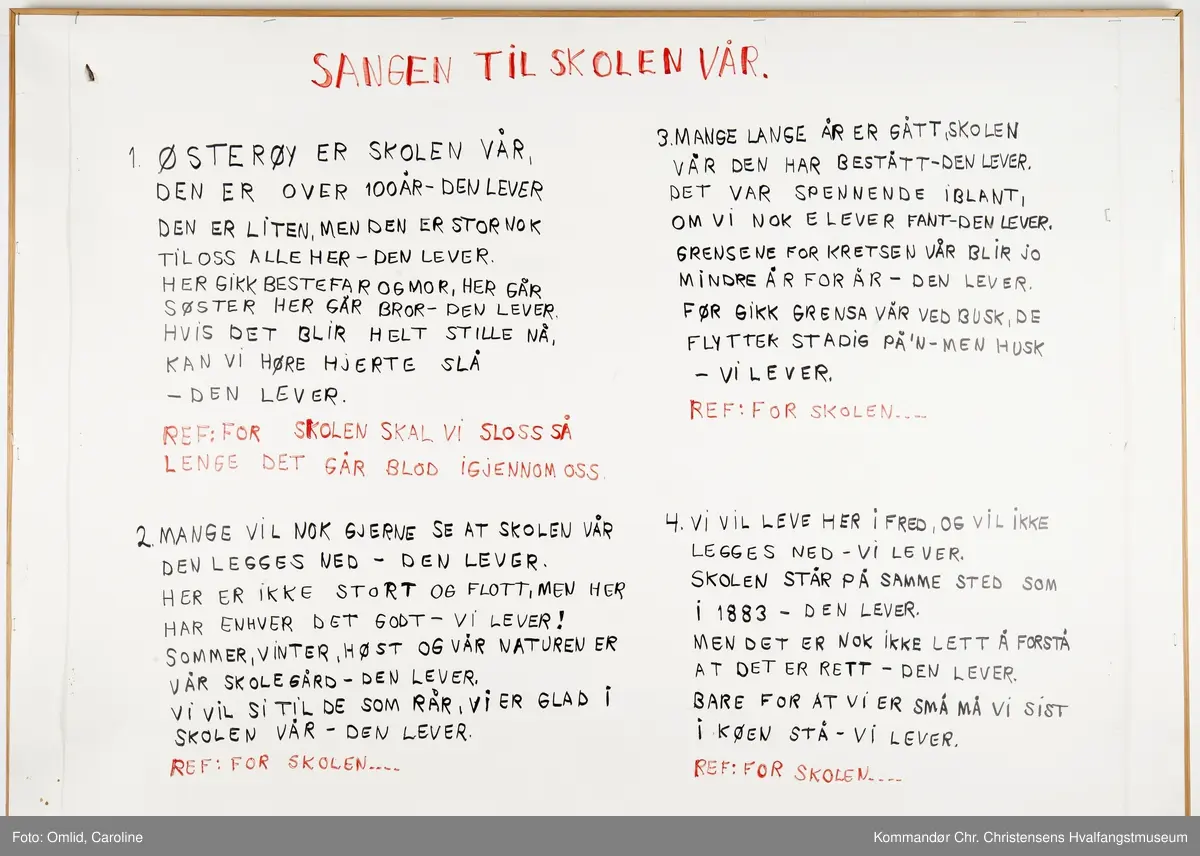 SANGEN TIL SKOLEN VÅR.
1. ØSTERØY ER SKOLEN VÅR,
DEN ER OVER 100 ÅR – DEN LEVER
DEN ER LITEN, MEN DEN ER STOR NOK
TIL OSS ALLE HER – DEN LEVER.
HER GIKK BESTEFAR OG MOR, HER GÅR
SØSTER HER GÅR BROR – DEN LEVER.
HVIS DET BLIR HELT STILLE NÅ,
KAN VI HØRE HJERTE SLÅ
– DEN LEVER.
REF: FOR SKOLEN SKAL VI SLOSS SÅ
LENGE DET GÅR BLOD IGJENNOM OSS.
2. MANGE VIL NOK GJERNE SE AT SKOLEN VÅR
DEN LEGGES NED – DEN LEVER.
HER ER IKKE STORT OG FLOTT, MEN HER
HAR ENHVER DET GODT – VI LEVER!
SOMMER, VINTER, HØST OG VÅR NATUREN ER
VÅR SKOLEGÅRD – DEN LEVER.
VI VIL SI TIL DE SOM RÅR, VI ER GLAD I
SKOLEN VÅR – DEN LEVER.
REF: FOR SKOLEN....
3. MANGE LANGE ÅR ER GÅTT, SKOLEN
VÅR DEN HAR BESTÅTT – DEN LEVER.
DET VAR SPENNENDE IBLANT,
OM VI NOK ELEVER FANT – DEN LEVER.
GRENSENE FOR KRETSEN VÅR BLIR JO
MINDRE ÅR FOR ÅR – DEN LEVER.
FØR GIKK GRENSA VÅR VED BUSK, DE
FLYTTER STADIG PÅ'N – MEN HUSK
– VI LEVER.
REF: FOR SKOLEN....
4. VI VIL LEVE HER I FRED, OG VIL IKKE
LEGGES NED – VI LEVER.
SKOLEN STÅR PÅ SAMME STED SOM
I 1883 – DEN LEVER.
MEN DET ER NOK IKKE LETT Å FORSTÅ
AT DET ER RETT – DEN LEVER.
BARE FOR AT VI ER SMÅ MÅ VI SIST
I KØEN STÅ – VI LEVER.
REF: FOR SKOLEN....
Foto: Omlid, Caroline
Kommandør Chr. Christensens Hvalfangstmuseum